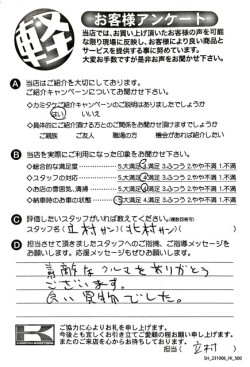 軽
お客様アンケート
当店では、お買い上げ頂いたお客様の声を可能
な限り現場に反映し、お客様により良い商品と
サービスを提供する事に努めています。
大変お手数ですが是非お声をお聞かせ下さい。
A 当店はご紹介を大切にしております。
ご紹介キャンペーンについてお聞かせ下さい。
◇カミタケご紹介キャンペーンのご説明はありましたでしょうか
はい いいえ
◇具体的にご紹介頂ける方とのご関係をお聞かせ頂けますでしょうか
ご親族 ご友人 職場の方 機会があれば紹介したい
B 当店を実際にご利用になった印象をお聞かせ下さい。
◇総合的な満足度 5.大満足 4.満足 3.ふつう 2.やや不満 1.不満
◇スタッフの対応 5.大満足 4.満足 3.ふつう 2.やや不満 1.不満
◇お店の雰囲気、清掃 5.大満足 4.満足 3.ふつう 2.やや不満 1.不満
◇納車時のお車の状態 5.大満足 4.満足 3.ふつう 2.やや不満 1.不満
C 評価したいスタッフがいれば教えてください。(複数回答可)
スタッフ名(立村サン)(北村サン)( )
D 担当させて頂きましたスタッフへのご指摘、ご指導メッセージを
お願いします。応援メッセージもぜひお願いします。
素敵なクルマをありがとう
ございます。
良い買物でした。
ご協力に心よりお礼を申し上げます。
今後とも宜しくお引き立てご愛顧の程お願い申し上げます。
またのご来店を心からお待ちしております。
担当( 立村 )
SH_231006_HI_500